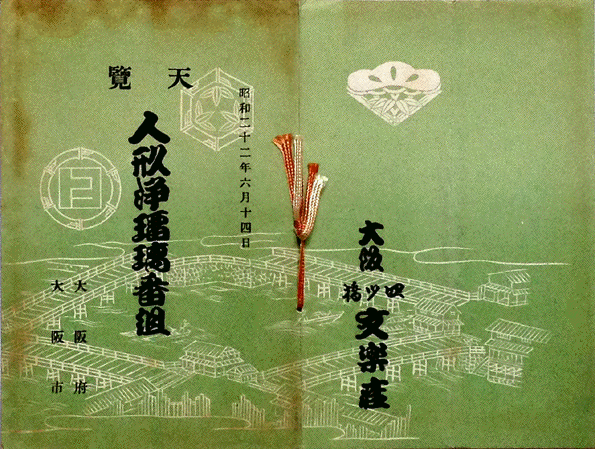 大阪
四ツ橋
文楽座
昭和二十二年六月十四日
天覽
人形浄瑠璃番組
大阪府
大阪市